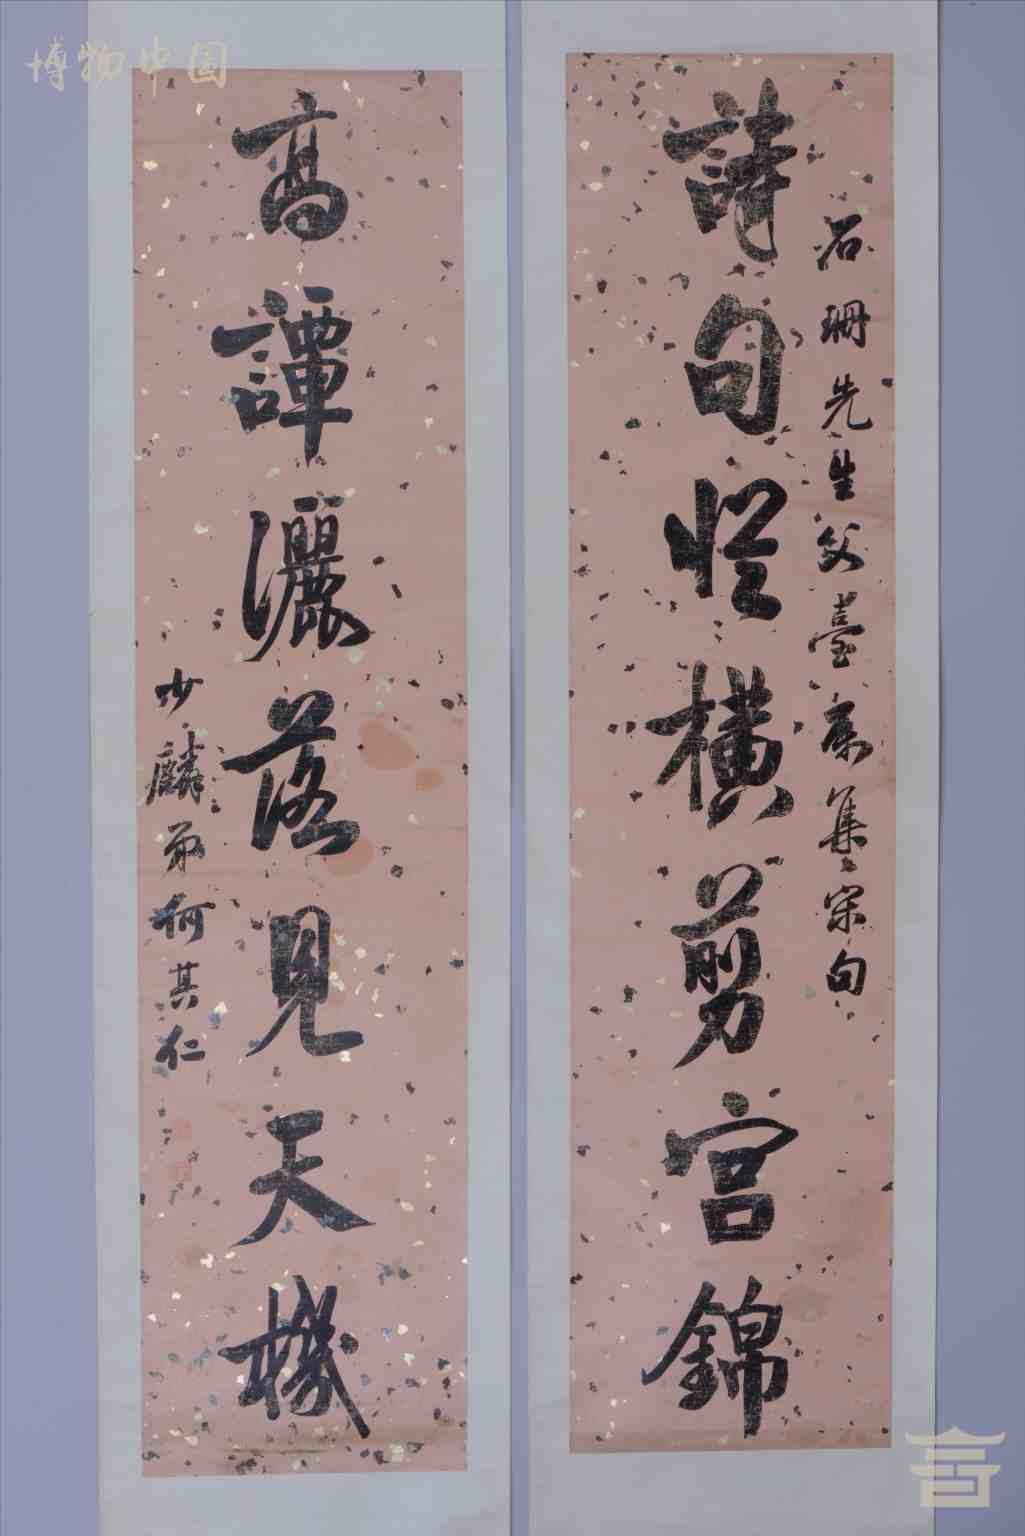 博物中国
石珊先生父臺集宋句
詩句從橫剪宮錦
高譚灑落見天機
少麟弟何其仁